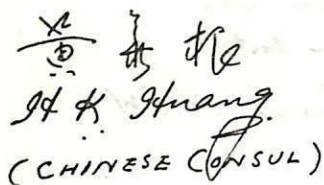 黄
H K Huang.
(CHINESE CONSUL)